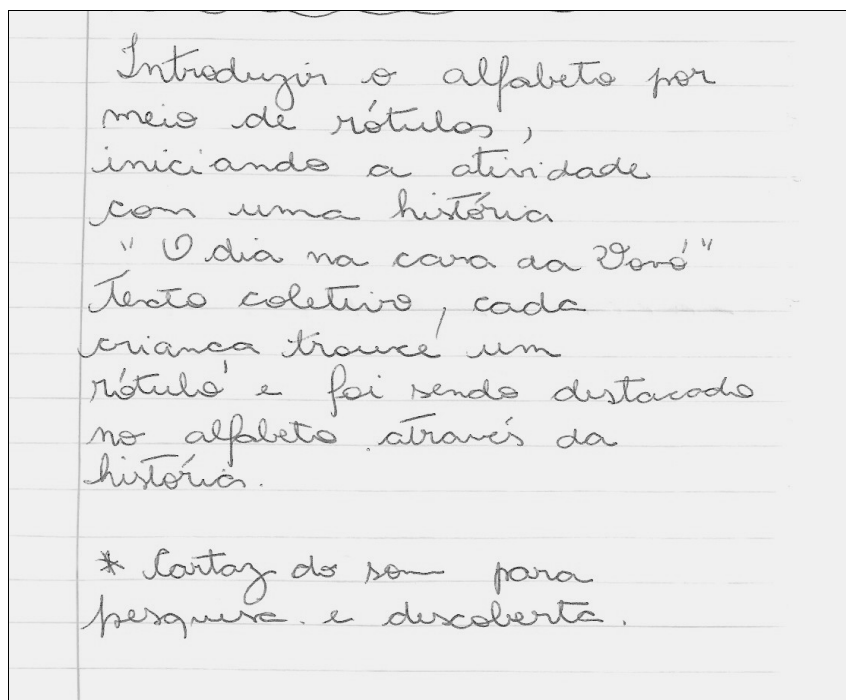 Introduzir o alfabeto por
meio de rótulos,
iniciando a atividade
com uma história
" O dia na casa da Vovó"
Texto coletivo, cada
criança trouxe um
rótulo e foi sendo destacado
no alfabeto através da
história.
* Cartaz do som para
pesquisa e descoberta.